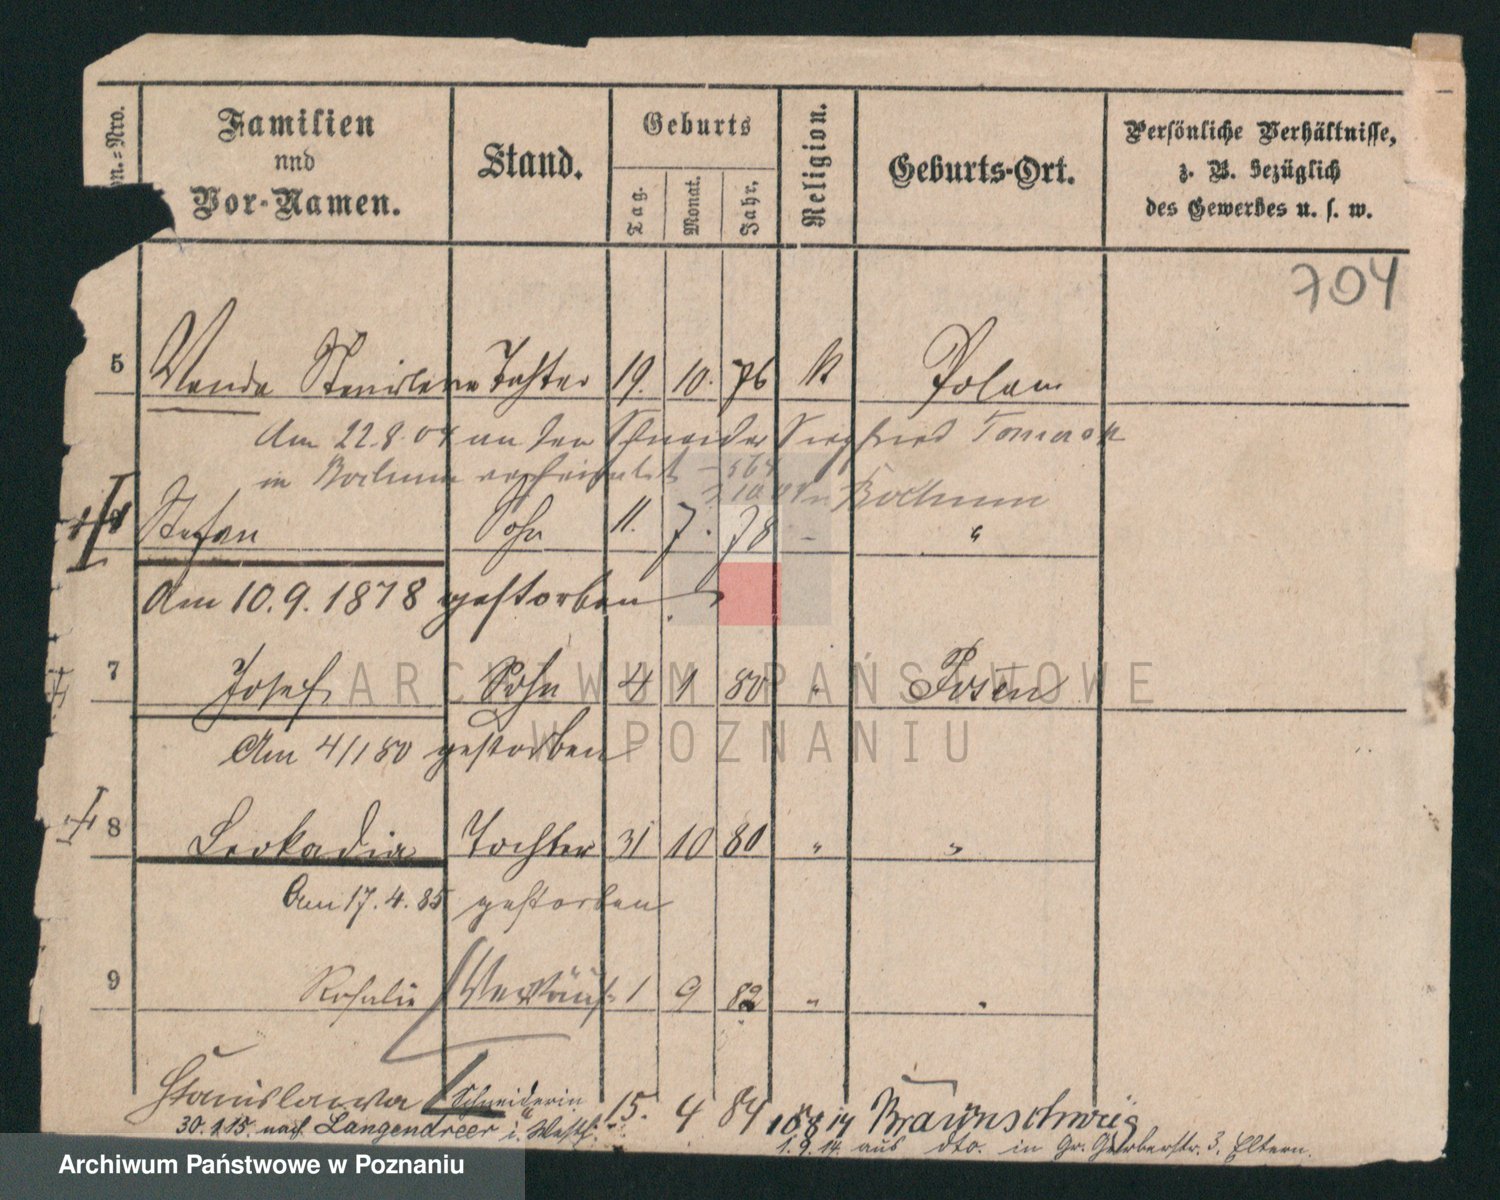 Familien
und
Vor-Namen.
Stand.
Geburts
Tag.
Monat.
Jahr.
Religion.
Geburts-Ort.
Persönliche Verhältnisse,
z. B. bezüglich
des Gewerbes u. s. w.
704
5 Wanda Stanislawa Tochter 19. 10. 76 K Polen
Am 22.8.04 an den Schneider Siegfried
in Bochum verheiratet
Bochum
Stefan Sohn 11. 7. 78 - "
Am 10.9.1878 gestorben
7 Josef Sohn 4 1 80 " Posen
Am 4/1 80 gestorben
8 Leokadia Tochter 31 10 80 " "
Am 17.4.85 gestorben
9 Rosalie 1 9 82 " "
Stanislawa Schneiderin 15. 4 84 Braunschweig
30.1.15. nach Langendreer i. Westf.
1.9.14 aus dto. in Gr. Gerberstr. 3, Eltern.
ARCHIWUM PAŃSTWOWE
W POZNANIU
Archiwum Państwowe w Poznaniu